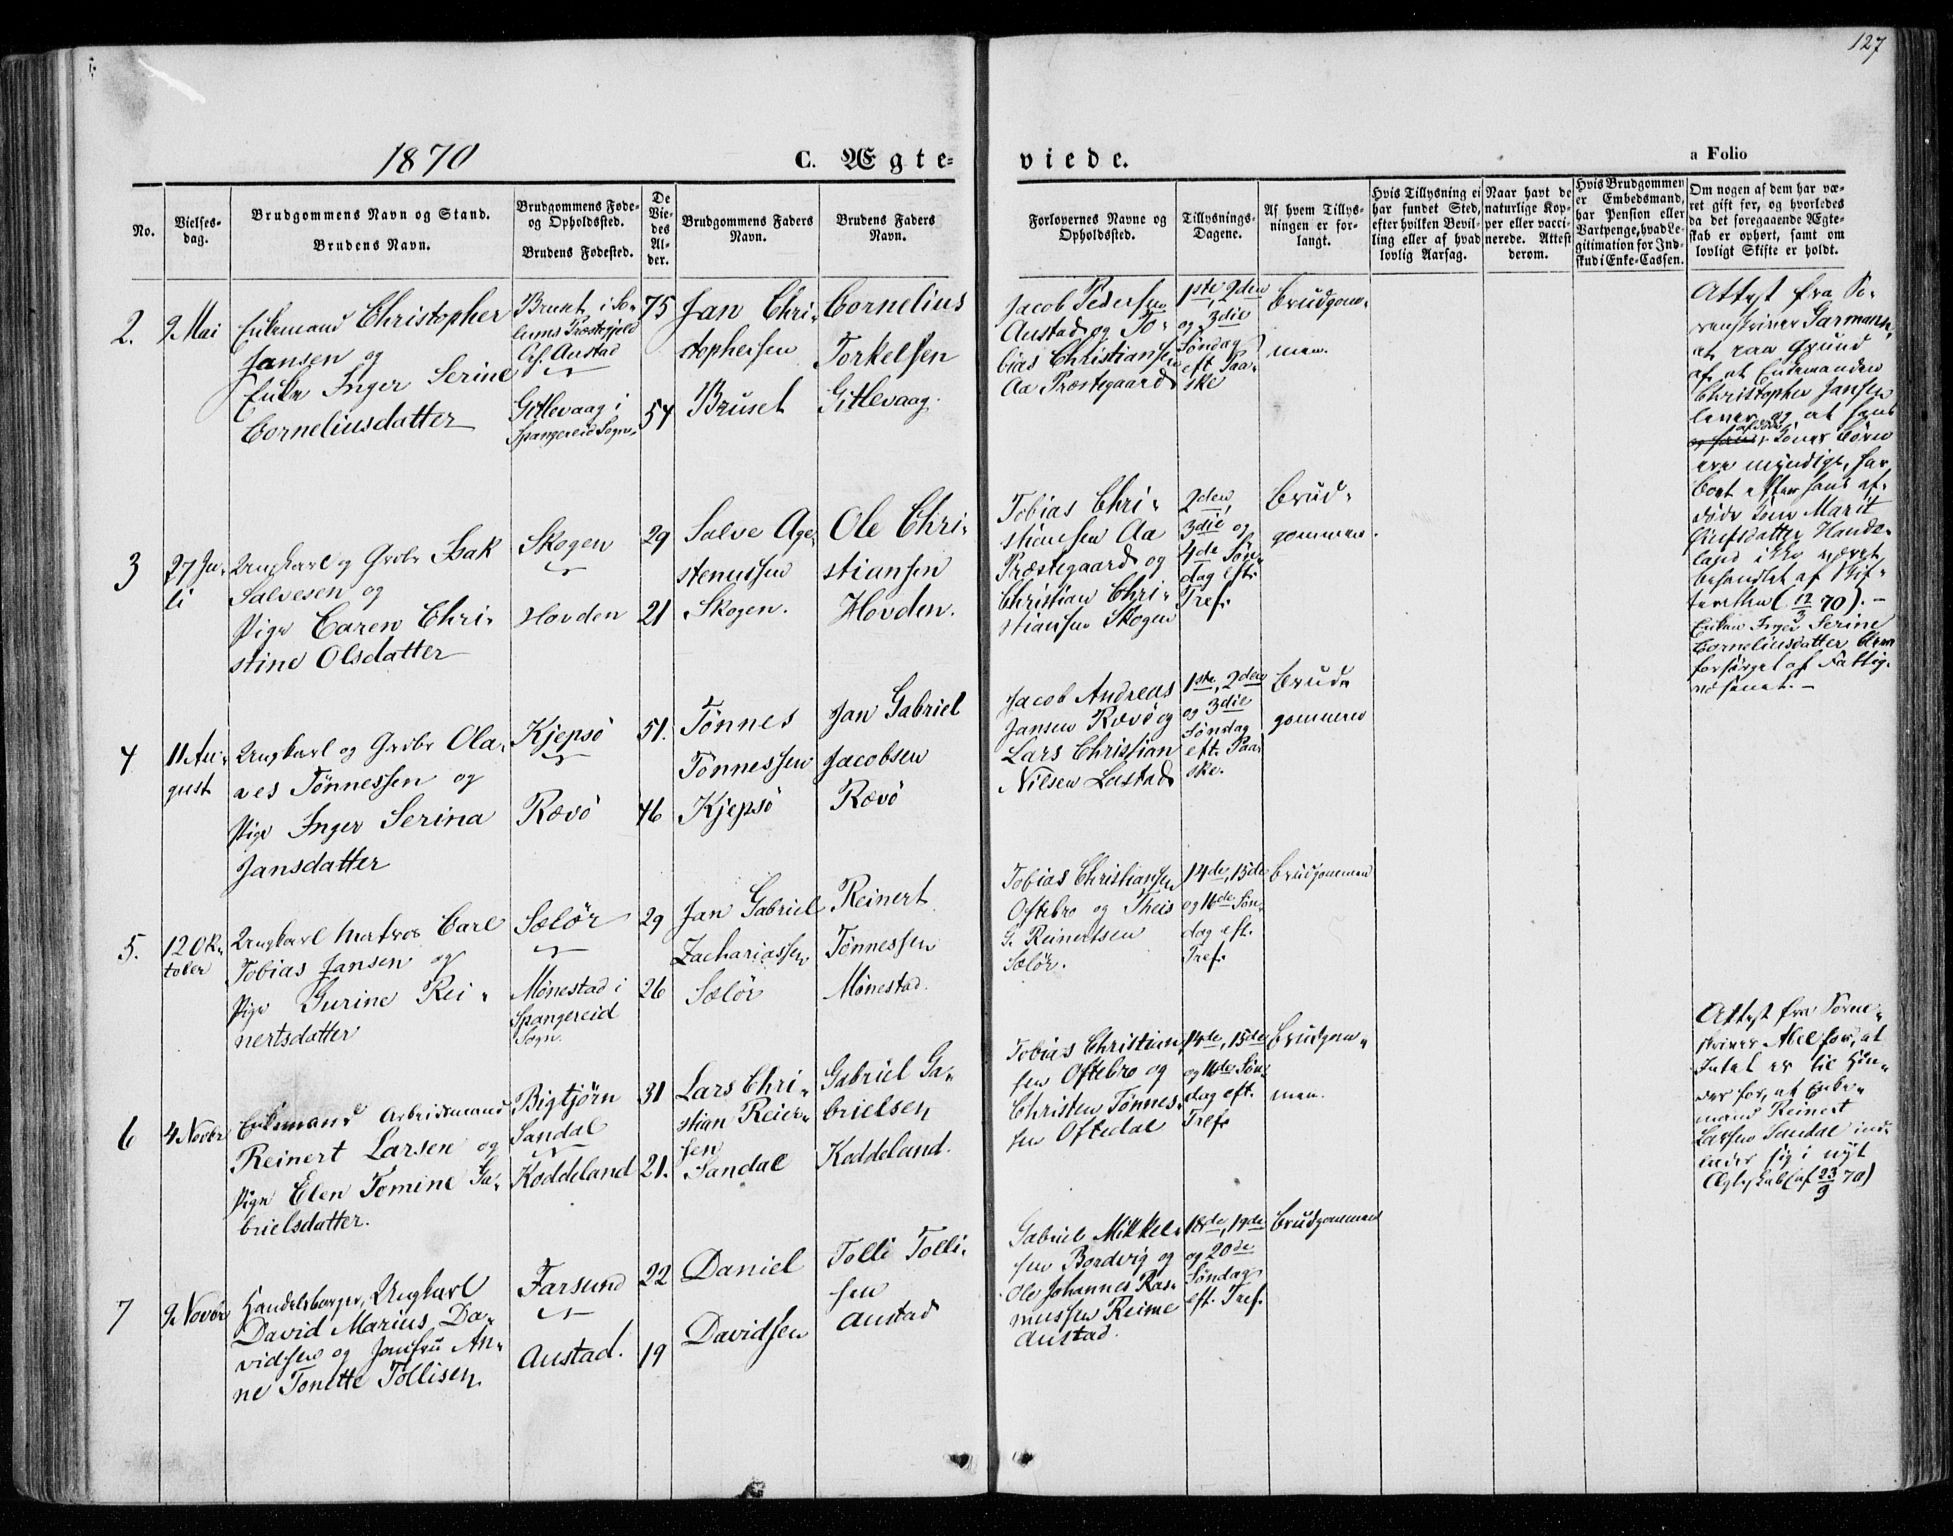 127
1870
C. Ægte-
viede.
a Folio
No.
Vielses-
dag.
Brudgommens Navn og Stand.
Brudens Navn.
Brudgommens Føde-
og Opholdssted.
Brudens Fødested.
De
Vie-
des
Al-
der.
Brudgommens Faders
Navn.
Brudens Faders
Navn.
Forlovernes Navne og
Opholdssted.
Tillysnings-
Dagene.
Af hvem Tillys-
ningen er for-
langt.
Hvis Tillysning ei
har fundet Sted,
efter hvilken Bevil-
ling eller af hvad
lovlig Aarsag.
Naar havt de
naturlige Kop-
per eller vacci-
nerede. Attest
derom.
Hvis Brudgommen
er Embedsmand,
har Pension eller
Vartpenge, hvad Le-
gitimation for Ind-
skud i Enke-Cassen.
Om nogen af dem har væ-
ret gift før, og hvorledes
da det foregaaende Ægte-
skab er ophørt, samt om
lovligt Skifte er holdt.
2.
9 Mai
Enkemand Christopher
Jansen og
Enke Inger Serine
Corneliusdatter
i So-
lums Præstegjeld
Austad
Gitlevaag i
Spangereid Sogn
75
57
Jan Chri-
stophersen
Bruset
Cornelius
Torkelsen
Gitlevaag.
Jacob Pedersen
Austad og To-
bias Christiansen
Aa Præstegaard
1ste, 2den
og 3die
Søndag
eft. Paa-
ske
Brudgom-
men.
Attest fra So-
renskriver Garmann,
at paa Grund
af at Enkemanden
Christopher Jansen
lever og at hans
afdøde Kones Børn
ere myndige, har
Boet efter hans af-
døde Kone Marit
datter
ikke været
behandlet af Skif-
teretten (12/3 70). -
Enken Inger Serine
Corneliusdatter
forsørget af Fattig-
væsenet. -
3
27 Ju-
li
Ungkarl og Grdbr Isak
Salvesen og
Pige Caren Chri-
stine Olsdatter
Skogen
Hovden
29
21
Salve Age-
stenussen
Skogen.
Ole Chri-
stiansen
Hovden.
Tobias Chri-
stiansen Aa
Præstegaard og
Christian Chri-
stiansen Skogen
2den,
3die og
4de Søn-
dag eft.
Tref.
Brud-
gommen.
4
11 Au-
gust
Ungkarl og Grdbr Ola-
ves Tønnessen og
Pige Inger Serina
Jansdatter
Kjepsø
Rævø
51.
46
Tønnes
Tønnessen
Kjepsø
Jan Gabriel
Jacobsen
Rævø
Jacob Andreas
Jansen Rævø og
Lars Christian
Nilsen Lastad
1ste, 2den
og 3die
Søndag
eft. Paa-
ske.
Brud-
gommen
5.
12 Ok-
tober
Ungkarl Matros Carl
Tobias Jansen og
Pige Gurine Rei-
nertsdatter
Sælør
Mønestad i
Spangereid
Sogn.
29
26
Jan Gabriel
Zachariassen
Sælør
Reinert
Tønnessen
Mønestad.
Tobias Christiansen
Oftebro og Theis
G. Reinertsen
Sælør.
14de, 15de
og 16de Søn-
dag eft.
Tref.
Brudgommen
6
4 Novbr
Enkemand Arbeidsmand
Reinert Larsen og
Pige Elen Tomine Ga-
brielsdatter.
Bigtjørn
Sandal
Koddeland
31
21.
Lars Chri-
stian Reier-
sen
Sandal
Gabriel Ga-
brielsen
Koddeland.
Tobias Christian-
sen Oftebro og
Christen Tønnes-
sen Oftedal
14de, 15de
og 16de Søn-
dag eft.
Tref.
Brudgom-
men.
Attest fra Soren-
skriver for, at
Intet er til Hin-
der for, at Enke-
mand Reinert
Larsen Sandal ind-
lader sig i nyt
Ægteskab (af 23/9 70)
7
9 Novbr
Handelsborger, Ungkarl
David Marius Da-
vidsen og Jomfru An-
ne Tonette Tollisen
Farsund
Austad.
22
19
Daniel
Davidsen
Tolli Tolli-
sen
Austad
Gabriel Mikkel-
sen Bordvig og
Ole Johannes Ras-
mussen Reime
Austad.
18de, 19de
og 20de
Søndag
eft. Tref.
Brudgommen